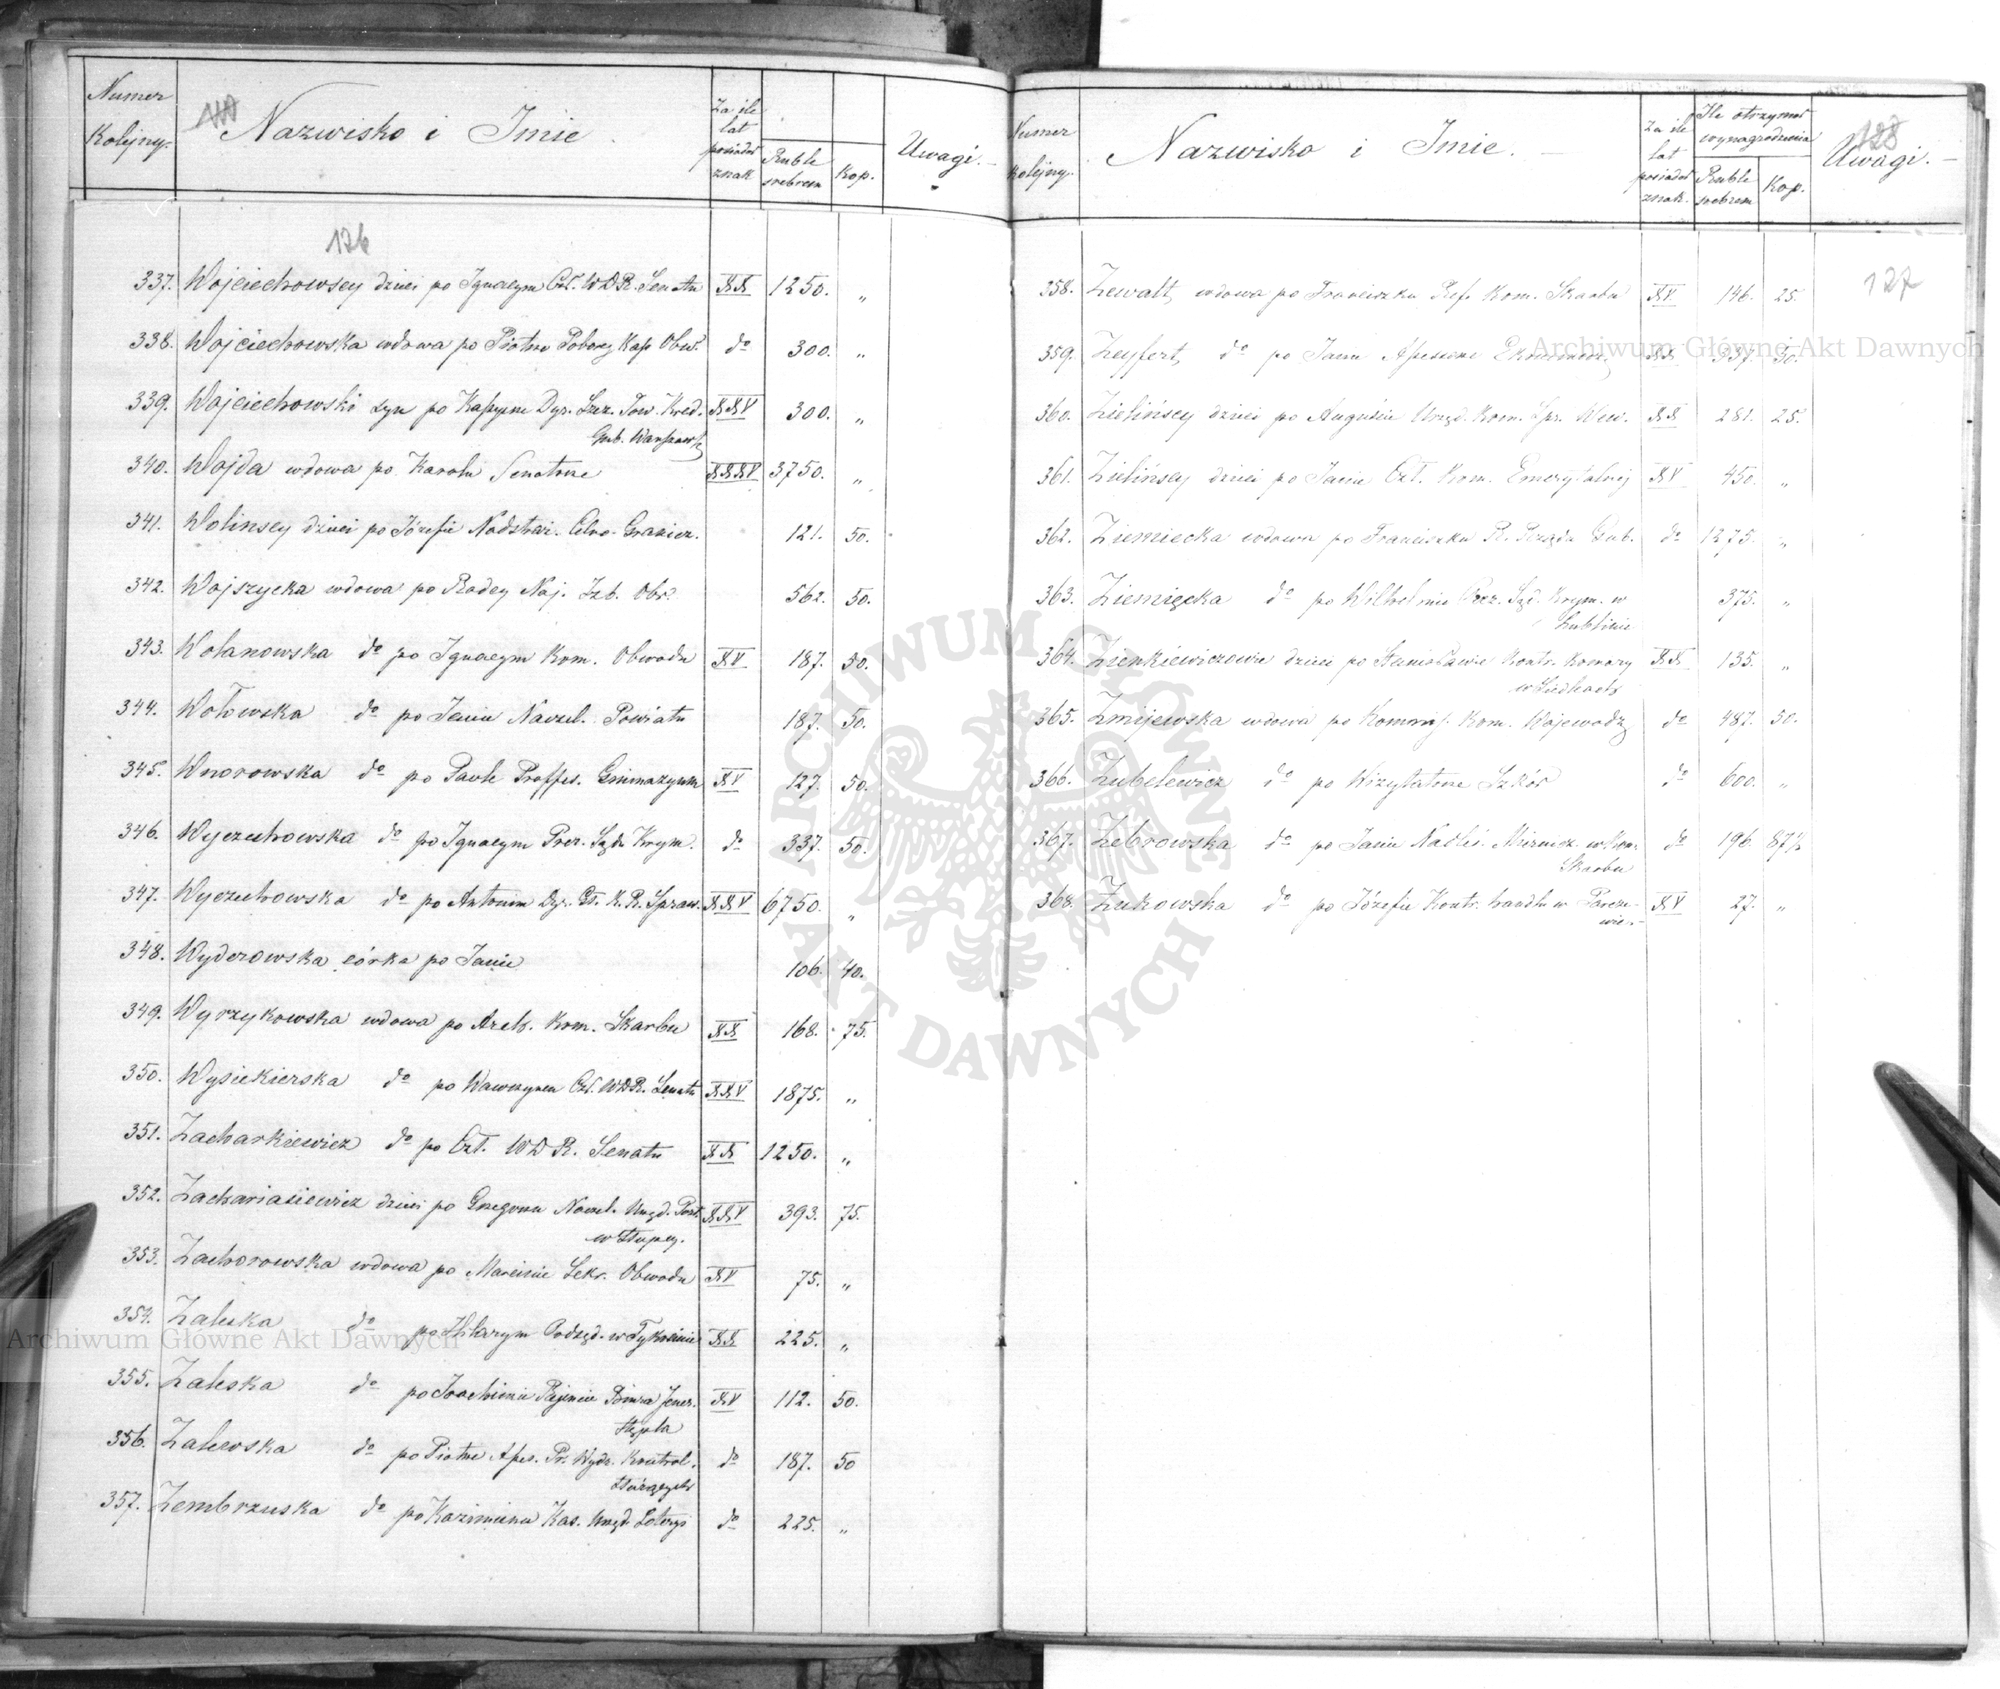 Numer Kolejny. Nazwisko i Imie Za ile lat posiadał znak Ruble srebrem Kop. Uwagi.
126
337. Wojciechowscy dzieci po Ignacym Czł. W D R. Senatu XX 1250. „
338. Wojciechowska wdowa po Piotrze Poborcy Kass. Obw. do 300. „
339. Wojciechowski syn po Kassprze Dyr. Szcz. Tow. Kred. XXV 300. „
Gub. Warszawsk
340. Wojda wdowa po Karolu Senatorze XXXV 3750. „
341. Wolinscy dzieci po Józefie Nadstraż. Celno-Granicz. 121. 50.
342. Wojszycka wdowa po Radcy Naj. Izb. Obr. 562. 50.
343. Wolanowska do po Ignacym Kom. Obwodu XV 187. 50.
344. Wołowska do po Janie Naczel. Powiatu 187. 50.
345. Wnorowska do po Pawle Proffes. Gimnazyum XV 127. 50.
346. Wyczechowska do po Ignacym Prez. Sądu Krym. do 337. 50.
347. Wyczechowska do po Antonim Dyr. Gł. K. R. Spraw. XXV 6750. „
348. Wyderowska córka po Janie 106. 40.
349. Wyrzykowska wdowa po Arch. Kom. Skarbu XX 168. 75.
350. Wysiekierska do po Wawrzyncu Czł. W D R. Senatu XXV 1875. „
351. Zacharkiewicz do po Czł. W D R. Senatu XX 1250. „
352. Zachariasiewicz dzieci po Grzegorzu Naczel. Urzęd. Poczt. XXV 393. 75.
w Słupcy.
353. Zachorowska wdowa po Marcinie Sekr. Obwodu XV 75. „
354. Zaleska do po Hilarym Podsęd. w Tykocinie XX 225. „
355. Zaleska do po Joachimie Rejencie Biura Jener. XV 112. 50.
Stępla
356. Zalewska do po Piotrze Asses. Pr. Wydz. Kontrol. do 187. 50
357. Zembrzuska do po Kazimierzu Kas. Urzęd. Loteryi do 225. „
Numer Kolejny. Nazwisko i Imie. Za ile lat posiadał znak. Ile otrzymał wynagrodzenia Ruble srebrem Kop. Uwagi.
128
127
358. Zewalt, wdowa po Franciszku Ref. Kom. Skarbu XV 146. 25.
359. Zeyfert, do po Janie Assessorze Ekonomicz XX 337. 50.
360. Zielińscy dzieci po Auguście Urzęd. Kom. Spr. Wew. XX 281. 25.
361. Zielińscy dzieci po Janie Czł. Kom. Emerytalnej XV 450. „
362. Ziemiecka wdowa po Franciszku R. Rządu Gub. do 1275. „
363. Ziemięcka do po Wilhelmie Prez. Sąd. Krym. w 375. „
Lublinie
364. Zienkiewiczowie dzieci po Stanisławie Kontr. Komory XX 135. „
365. Zmijewska wdowa po Kommis. Kom. Wojewodz do 487. 50.
366. Zubelewicz do po Wizytatorze Szkół do 600. „
367. Zebrowska do po Janie Nadleś. Miernicz. w Kom. do 196. 87½
Skarbu
368. Zukowska do po Józefie Kontr. handlu w Parcze- XV 27. „
wie.
Archiwum Główne Akt Dawnych
ARCHIWUM GŁÓWNE AKT DAWNYCH
Archiwum Główne Akt Dawnych